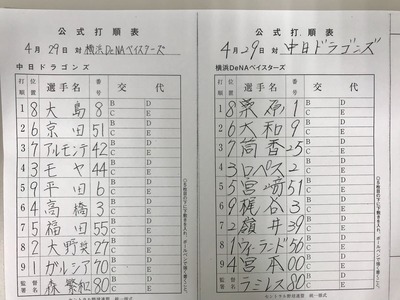 公式打順表
4月29日 対 横浜DeNAベイスターズ
中日ドラゴンズ
打順 位置 選手名 番号 交代
1 8 大島 8 B D C E
2 6 京田 51 B D C E
3 7 アルモンテ 42 B D C E
4 3 モヤ 44 B D C E
5 9 平田 6 B D C E
6 4 高橋 3 B D C E
7 5 福田 55 B D C E
8 2 大野奨 27 B D C E
9 1 ガルシア 70 B D C E
監督 森繁和 80
公式打順表
4月29日 対 中日ドラゴンズ
横浜DeNAベイスターズ
打順 位置 選手名 番号 交代
1 8 桑原 1 B D C E
2 6 大和 9 B D C E
3 7 筒香 25 B D C E
4 3 ロペス 2 B D C E
5 5 宮﨑 51 B D C E
6 9 梶谷 3 B D C E
7 2 嶺井 39 B D C E
8 1 ウィーランド 56 B D C E
9 4 宮本 00 B D C E
監督 ラミレス 80